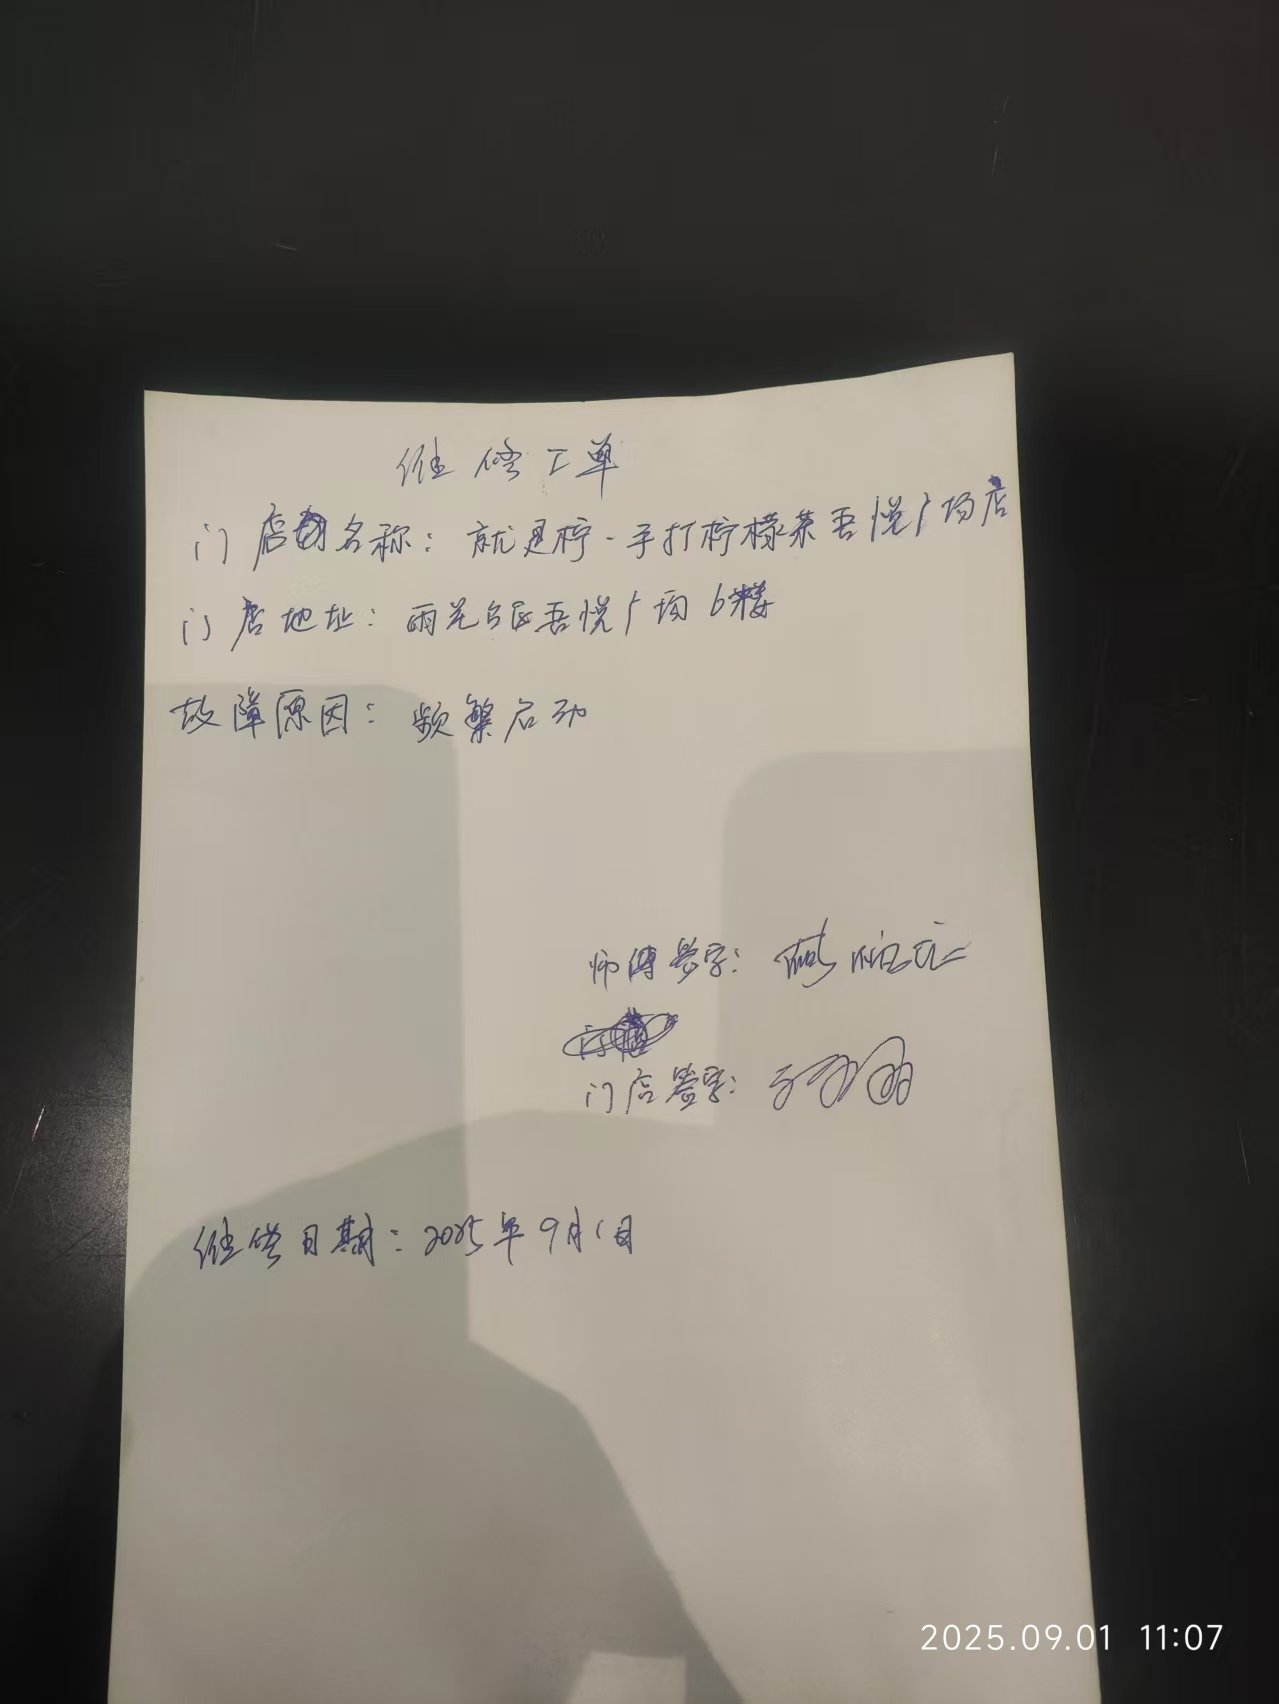 维修工单
门店名称：就是柠·手打柠檬茶吾悦广场店
门店地址：雨花台区吾悦广场6楼
故障原因：频繁启动
师傅签字：
门店签字：
维修日期：2025年9月1日
2025.09.01 11:07